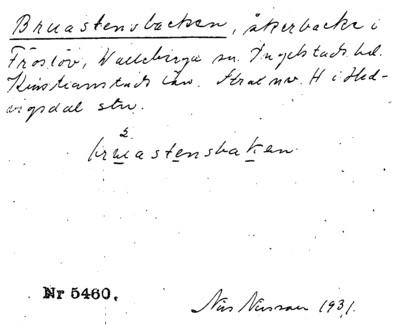 Bruastensbacken, åkerbacke i
Fröslöv, Valleberga sn. Ingelstads hd.
Kristianstads län. Strax nv. H i Hed-
vigsdal stn.
2
bruastensbaken
Nr 5460.
Nils Nilsson 1931.